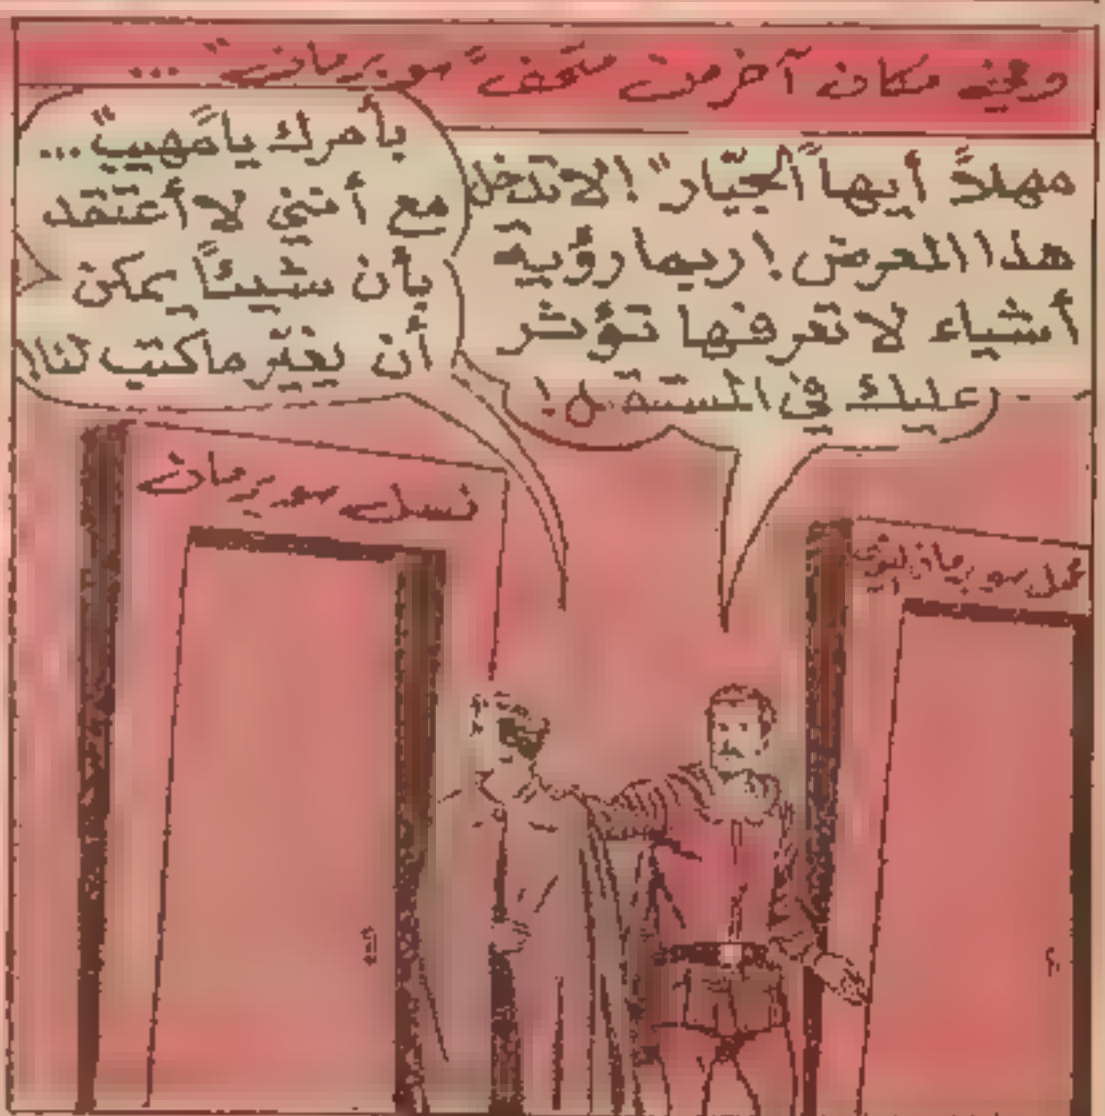 وفي مكان آخر من متحف "سوبرمان" ...
مهلاً أيها "الجبّار"! لا تدخل
هذا المعرض! ربما رؤية
أشياء لا تعرفها تؤثر
عليك في المستقبل!
بأمرك يا "مهيب" ...
مع أنني لا أعتقد
بأن شيئاً يمكن
أن يغيّر ما كتب لنا!
نسل سوبرمان
سوبرمان